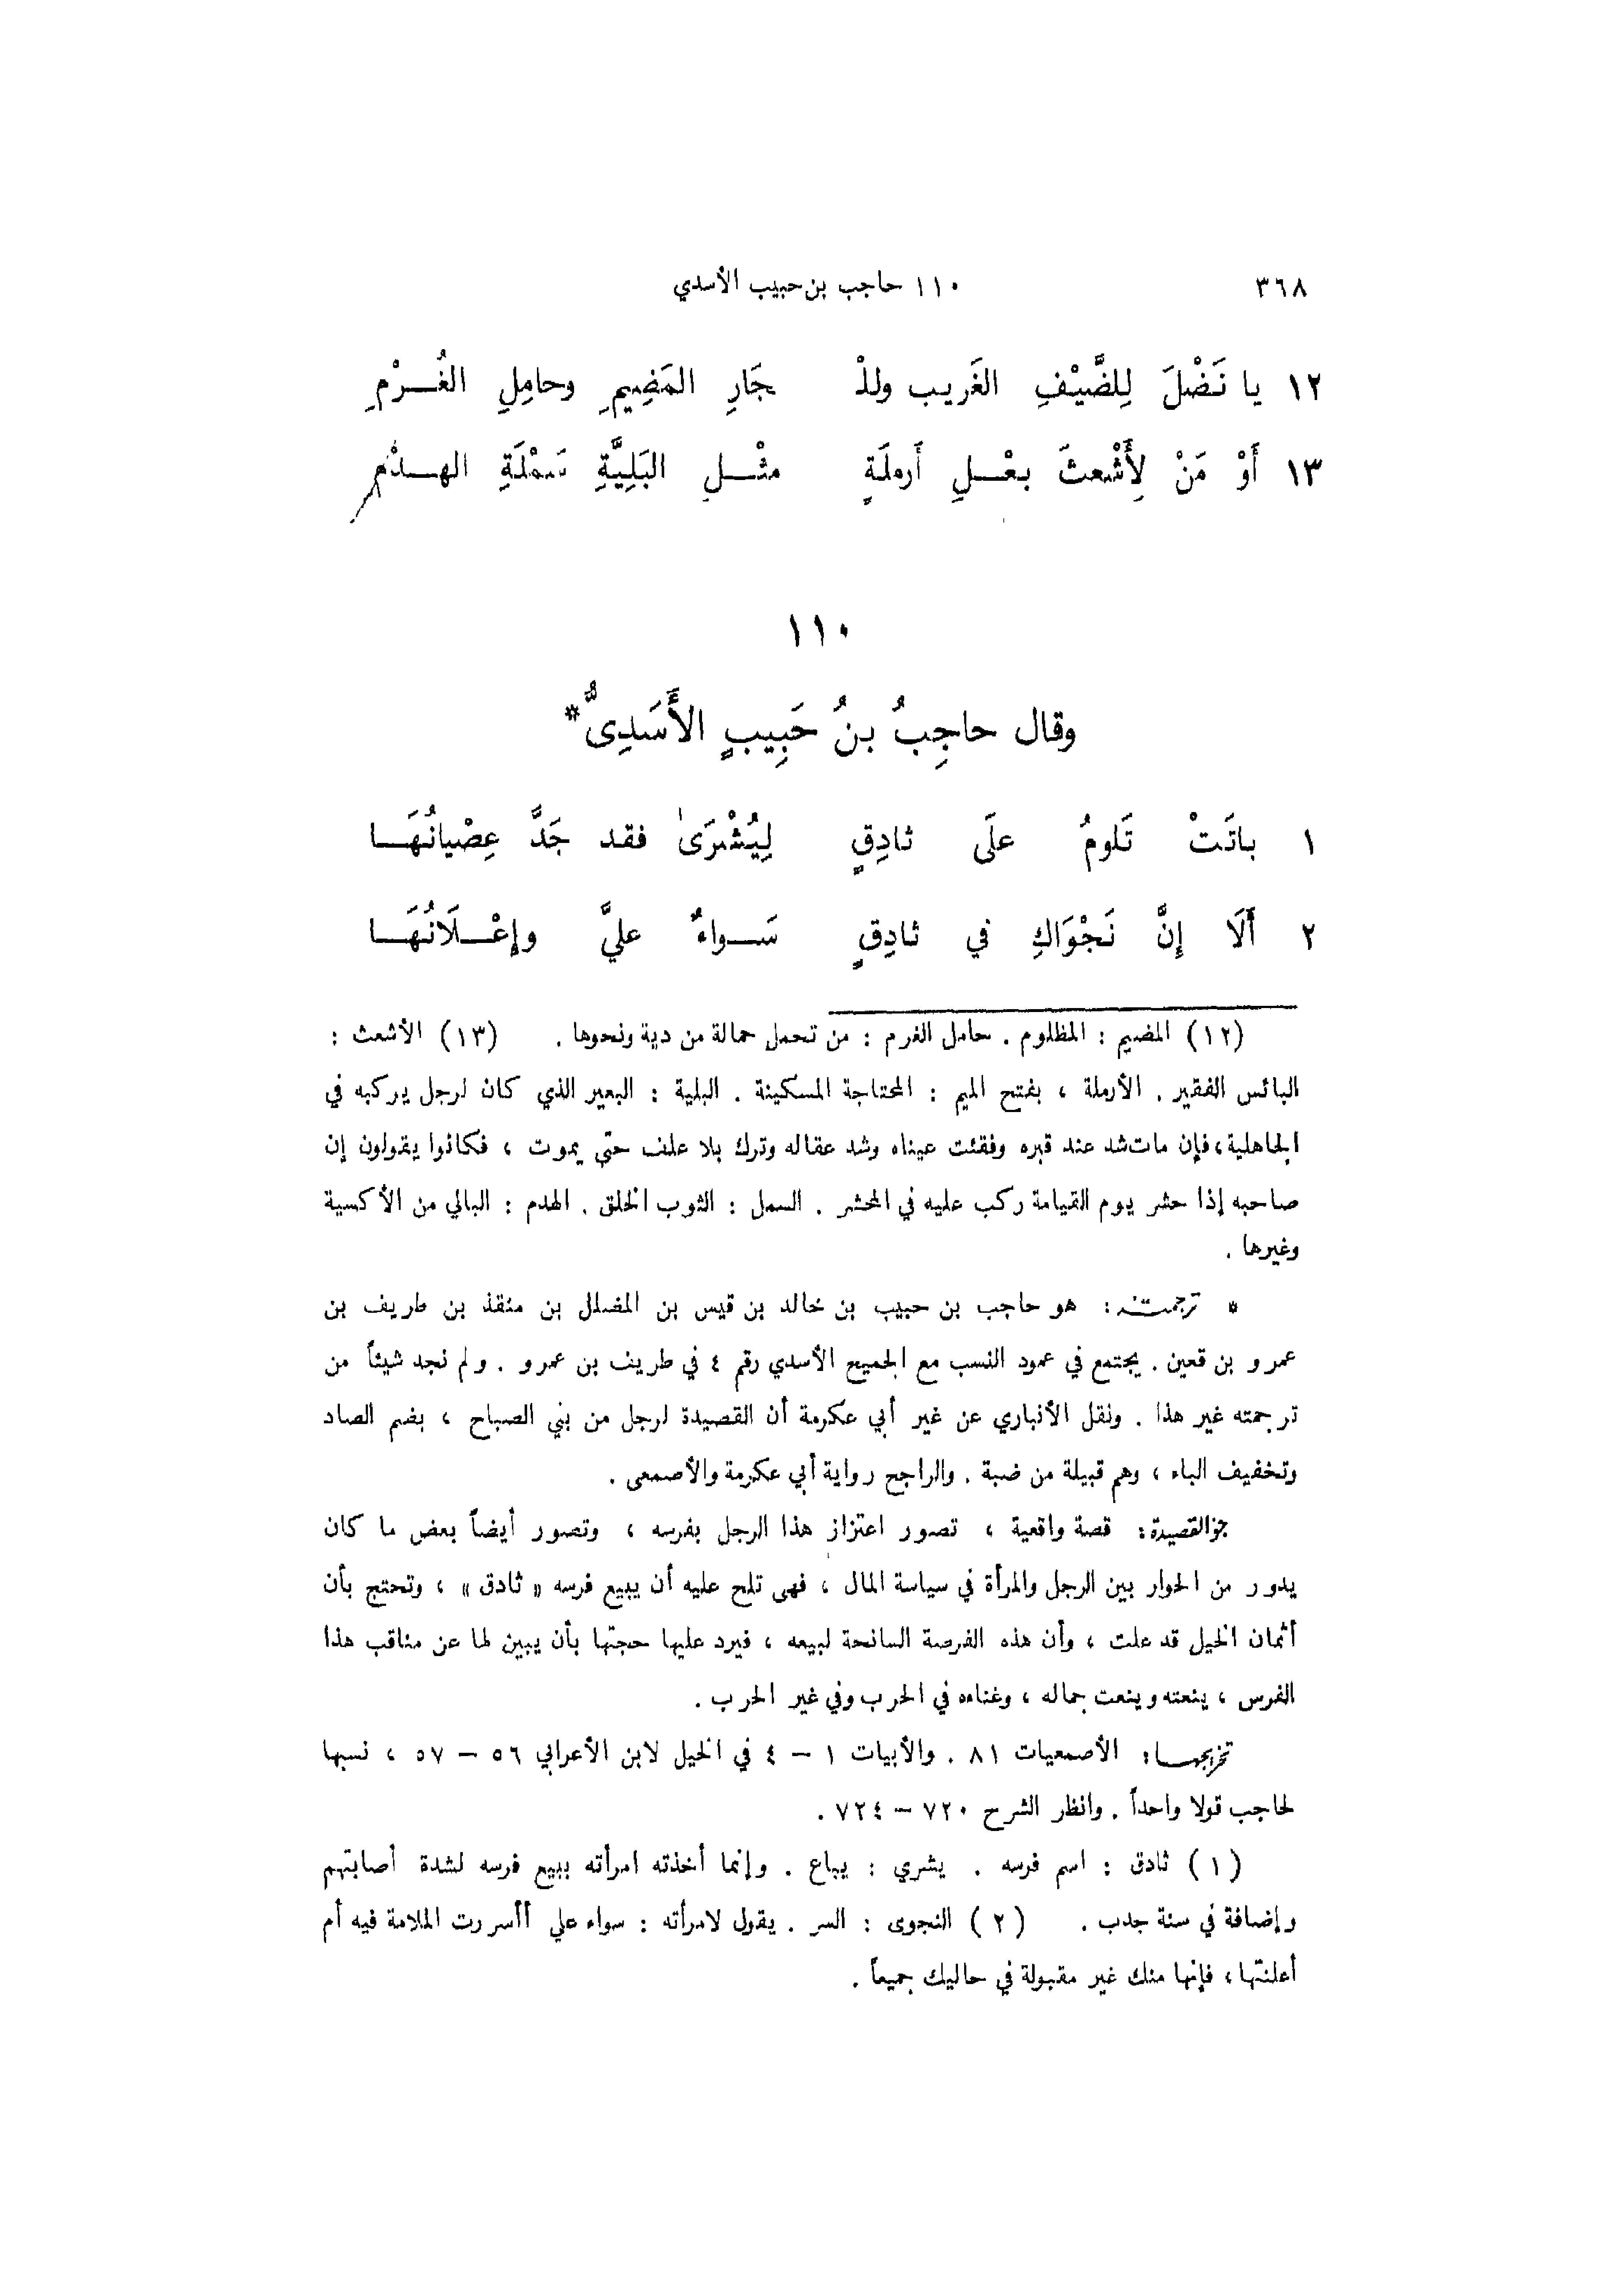 ٣٦٨ ١١٠ حاجب بن حبيب الأسدي
١٢ يا نَضْلَ لِلضَّيْفِ الغَريب وللْ جَارِ المَضِيمِ وحامِلِ الغُرْمِ
١٣ أَوْ مَنْ لِأَشْعثَ بعْلِ أَرملَةٍ مثْلِ البَلِيَّةِ سَمْلَةِ الهدْمِ
١١٠
وقال حاجِبُ بنُ حَبِيبٍ الأَسَدِىُّ*
١ باتَتْ تَلومُ علَى ثادِقٍ لِيُشْرَىٰ فقد جَدَّ عِصْيانُهَا
٢ أَلَا إِنَّ نَجْوَاكِ في ثادِقٍ سَواءٌ عليَّ وإِعْلَانُهَا
(١٢) المضيم : المظلوم . حامل الغرم : من تحمل حمالة من دية ونحوها . (١٣) الأشعث :
البائس الفقير . الأرملة ، بفتح الميم : المحتاجة المسكينة . البلية : البعير الذي كان لرجل يركبه في
الجاهلية ، فإن مات شد عند قبره وفقئت عيناه وشد عقاله وترك بلا علف حتى يموت ، فكانوا يقولون إن
صاحبه إذا حشر يوم القيامة ركب عليه في المحشر . السمل : الثوب الخلق . الهدم : البالي من الأكسية
وغيرها .
* ترجمته : هو حاجب بن حبيب بن خالد بن قيس بن المضلل بن منقذ بن طريف بن
عمرو بن قعين . يجتمع في عمود النسب مع الجميح الأسدي رقم ٤ في طريف بن عمرو . ولم نجد شيئاً من
ترجمته غير هذا . ونقل الأنباري عن غير أبي عكرمة أن القصيدة لرجل من بني الصباح ، بضم الصاد
وتخفيف الباء ، وهم قبيلة من ضبة . والراجح رواية أبي عكرمة والأصمعى .
جو القصيدة : قصة واقعية ، تصور اعتزاز هذا الرجل بفرسه ، وتصور أيضاً بعض ما كان
يدور من الحوار بين الرجل والمرأة في سياسة المال ، فهى تلح عليه أن يبيع فرسه « ثادق » ، وتحتج بأن
أثمان الخيل قد علت ، وأن هذه الفرصة السانحة لبيعه ، فيرد عليها حجتها بأن يبين لها عن مناقب هذا
الفرس ، ينعته وينعت جماله ، وغناءه في الحرب وفي غير الحرب .
تخريجها : الأصمعيات ٨١ . والأبيات ١ – ٤ في الخيل لابن الأعرابي ٥٦ – ٥٧ ، نسبها
لحاجب قولا واحداً . وانظر الشرح ٧٢٠ – ٧٢٤ .
(١) ثادق : اسم فرسه . يشري : يباع . وإنما أخذته امرأته ببيع فرسه لشدة أصابتهم
وإضافة في سنة جدب . (٢) النجوى : السر . يقول لامرأته : سواء علي أأسررت الملامة فيه أم
أعلنتها ، فإنها منك غير مقبولة في حاليك جميعاً .